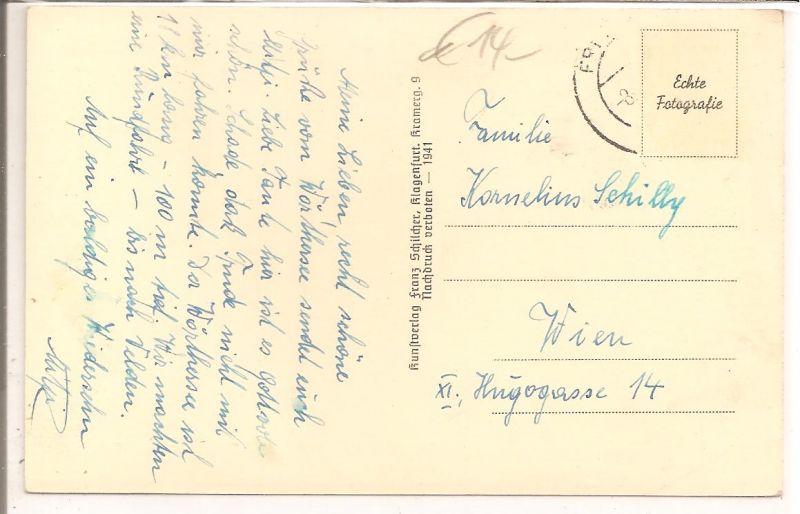 Meine Lieben, recht schöne
Grüße vom Wörthersee sendet euch
Mitzi. Liebe Tante hier ist es
schön. Schade daß nicht mit
mir fahren konnte. Der Wörthersee ist
18 km lang – 100 m tief. Wir machten
eine Rundfahrt – bis nach Velden.
Auf ein baldiges Wiedersehn
Mitzi
Kunstverlag Franz Schilcher, Klagenfurt, Kramerg. 9
Nachdruck verboten — 1941
€ 14-
Echte
Fotografie
Familie
Kornelius Schilly
Wien
XI., Hugogasse 14